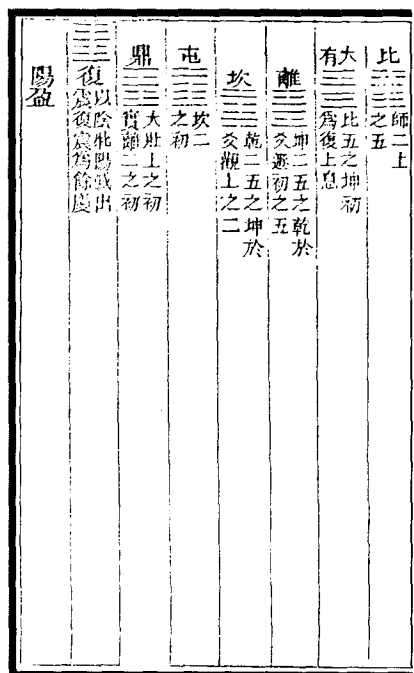 比 師二上之五
大有 比五之坤初為復上息
離 坤二五之乾於爻遯初之五
坎 乾二五之坤於爻觀上之二
屯 坎二之初
鼎 大壯上之初實離二之初
復 以陰牝陽滅出震復震為餘慶
陽盈